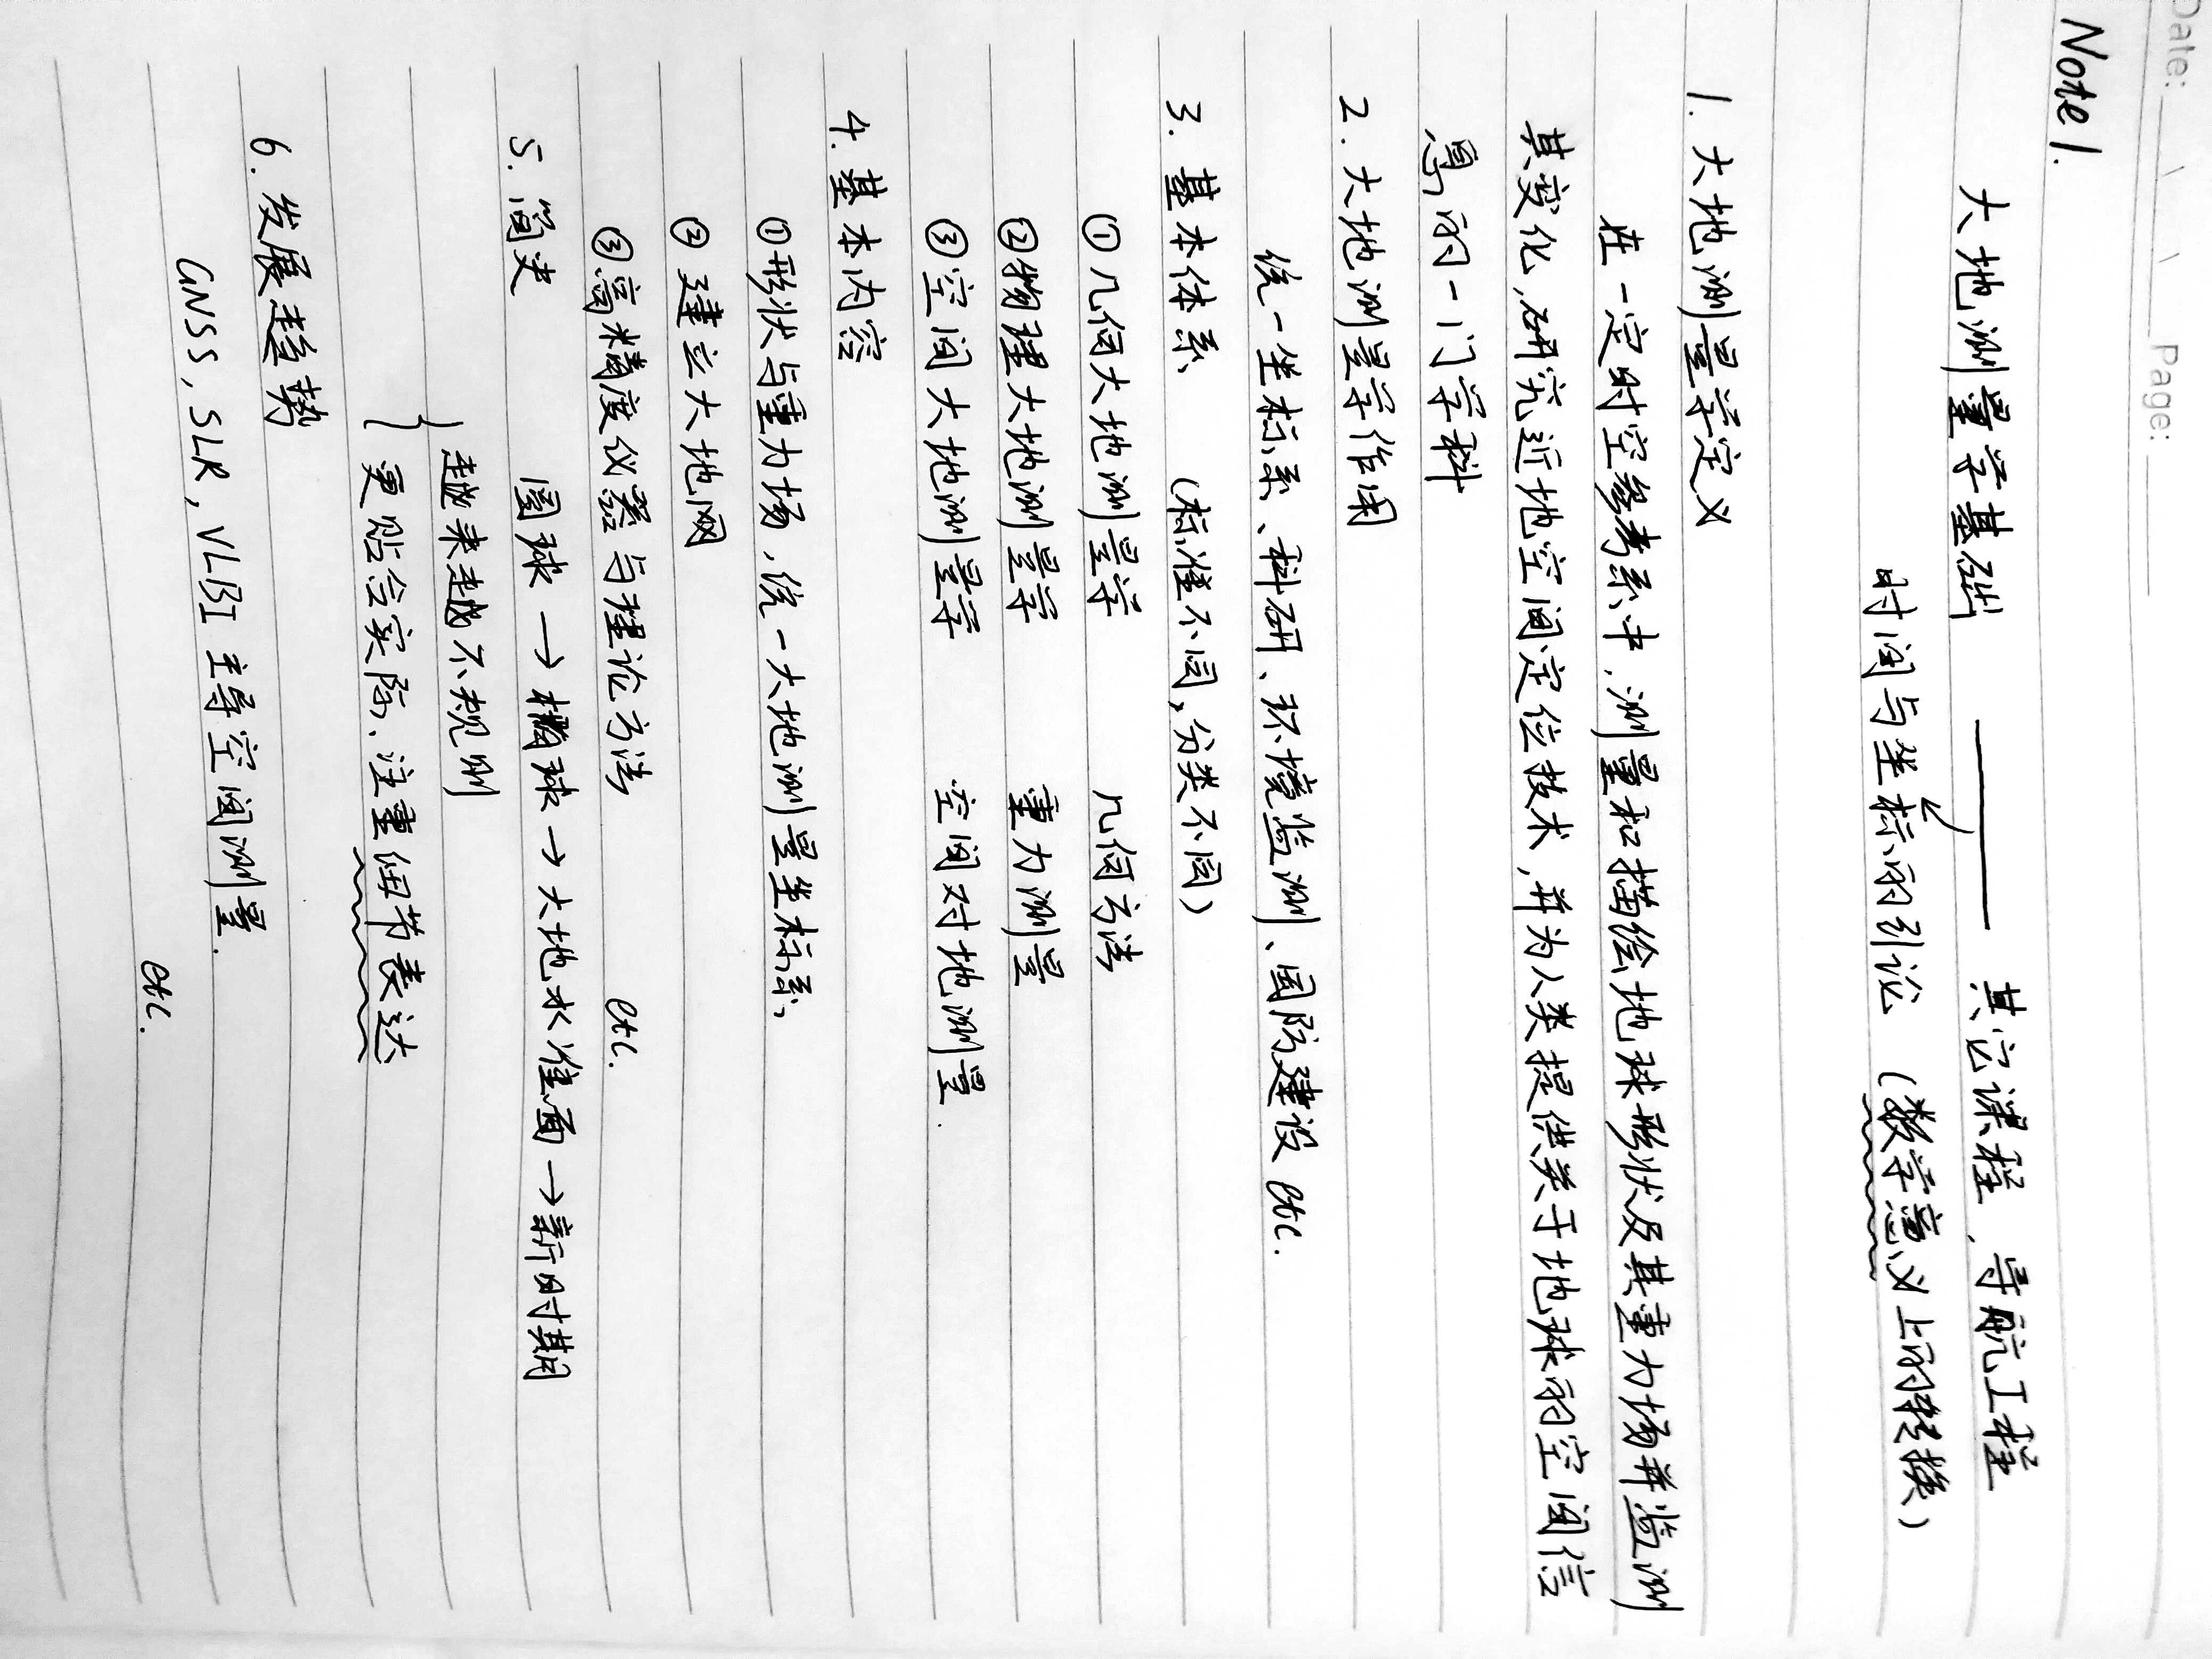 Date: \ \ Page:
Note 1.
大地测量学基础 —— 其它课程,导航工程
时间与坐标的引论 (数学意义上的转换)
1. 大地测量学定义
在一定时空参考系中,测量和描绘地球形状及其重力场并监测
其变化,研究近地空间定位技术,并为人类提供关于地球的空间信
息的一门学科
2. 大地测量学作用
统一坐标系、科研、环境监测、国防建设 etc.
3. 基本体系 (标准不同,分类不同)
①几何大地测量学 几何方法
②物理大地测量学 重力测量
③空间大地测量学 空间对地测量.
4. 基本内容
①形状与重力场,统一大地测量坐标系
② 建立大地网
③高精度仪器与理论方法 etc.
5. 简史 圆球 → 椭球 → 大地水准面 → 新时期
越来越不规则
更贴合实际、注重细节表达
6. 发展趋势
GNSS, SLR, VLBI 主导空间测量.
etc.